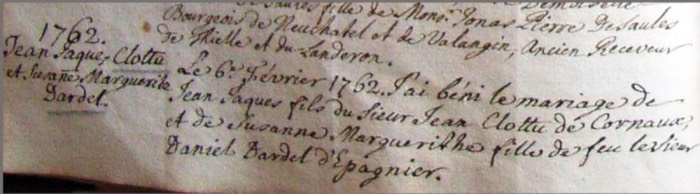 Desaules fille de Monsr. Jonas Pierre Desaules
Bourgeois de Neuchatel et de Valangin, Ancien Receveur
de Thielle et du Landeron.
1762.
Jean Jaques Clottu
et Susane Marguerite
Dardel.
Le 6e. Février 1762. J'ai béni le mariage de
Jean Jaques fils du Sieur Jean Clottu de Cornaux,
et de Susanne Marguerithe fille de feu le Sieur
Daniel Dardel d'Epagnier.